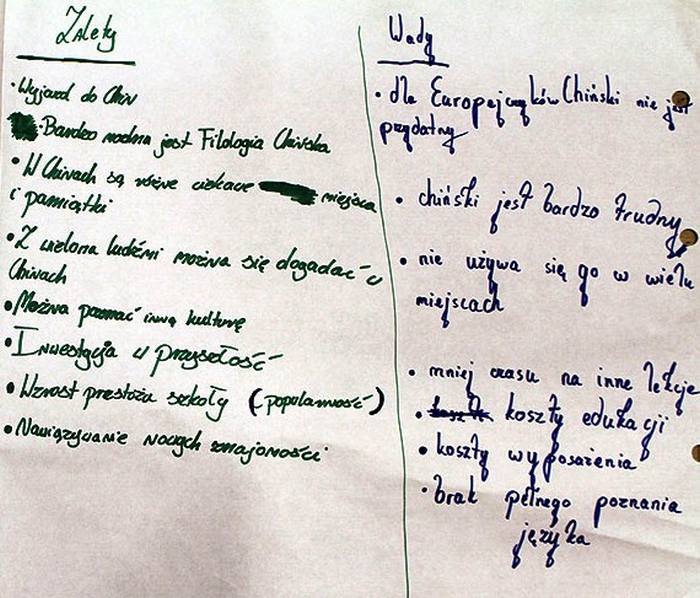 Zalety
• Wyjazd do Chin
• Bardzo modna jest Filologia Chińska
• W Chinach są różne ciekawe miejsca
i pamiątki
• Z wieloma ludźmi można się dogadać w
Chinach
• Można poznać inną kulturę
• Inwestycja w przyszłość
• Wzrost prestożu szkoły (popolarność)
• Nawiązywanie nowych znajomości
Wady
• dla Europejczyków Chiński nie jest
przydatny
• chiński jest bardzo trudny
• nie używa się go w wielu
miejscach
• mniej czasu na inne lekcje
• koszty edukacji
• koszty wyposażenia
• brak pełnego poznania
języka